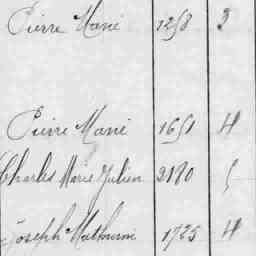 Pierre Marie 1258 3
Pierre Marie 1651 4
Charles Marie Julien 2180 5
Joseph Mathurin 1725 4